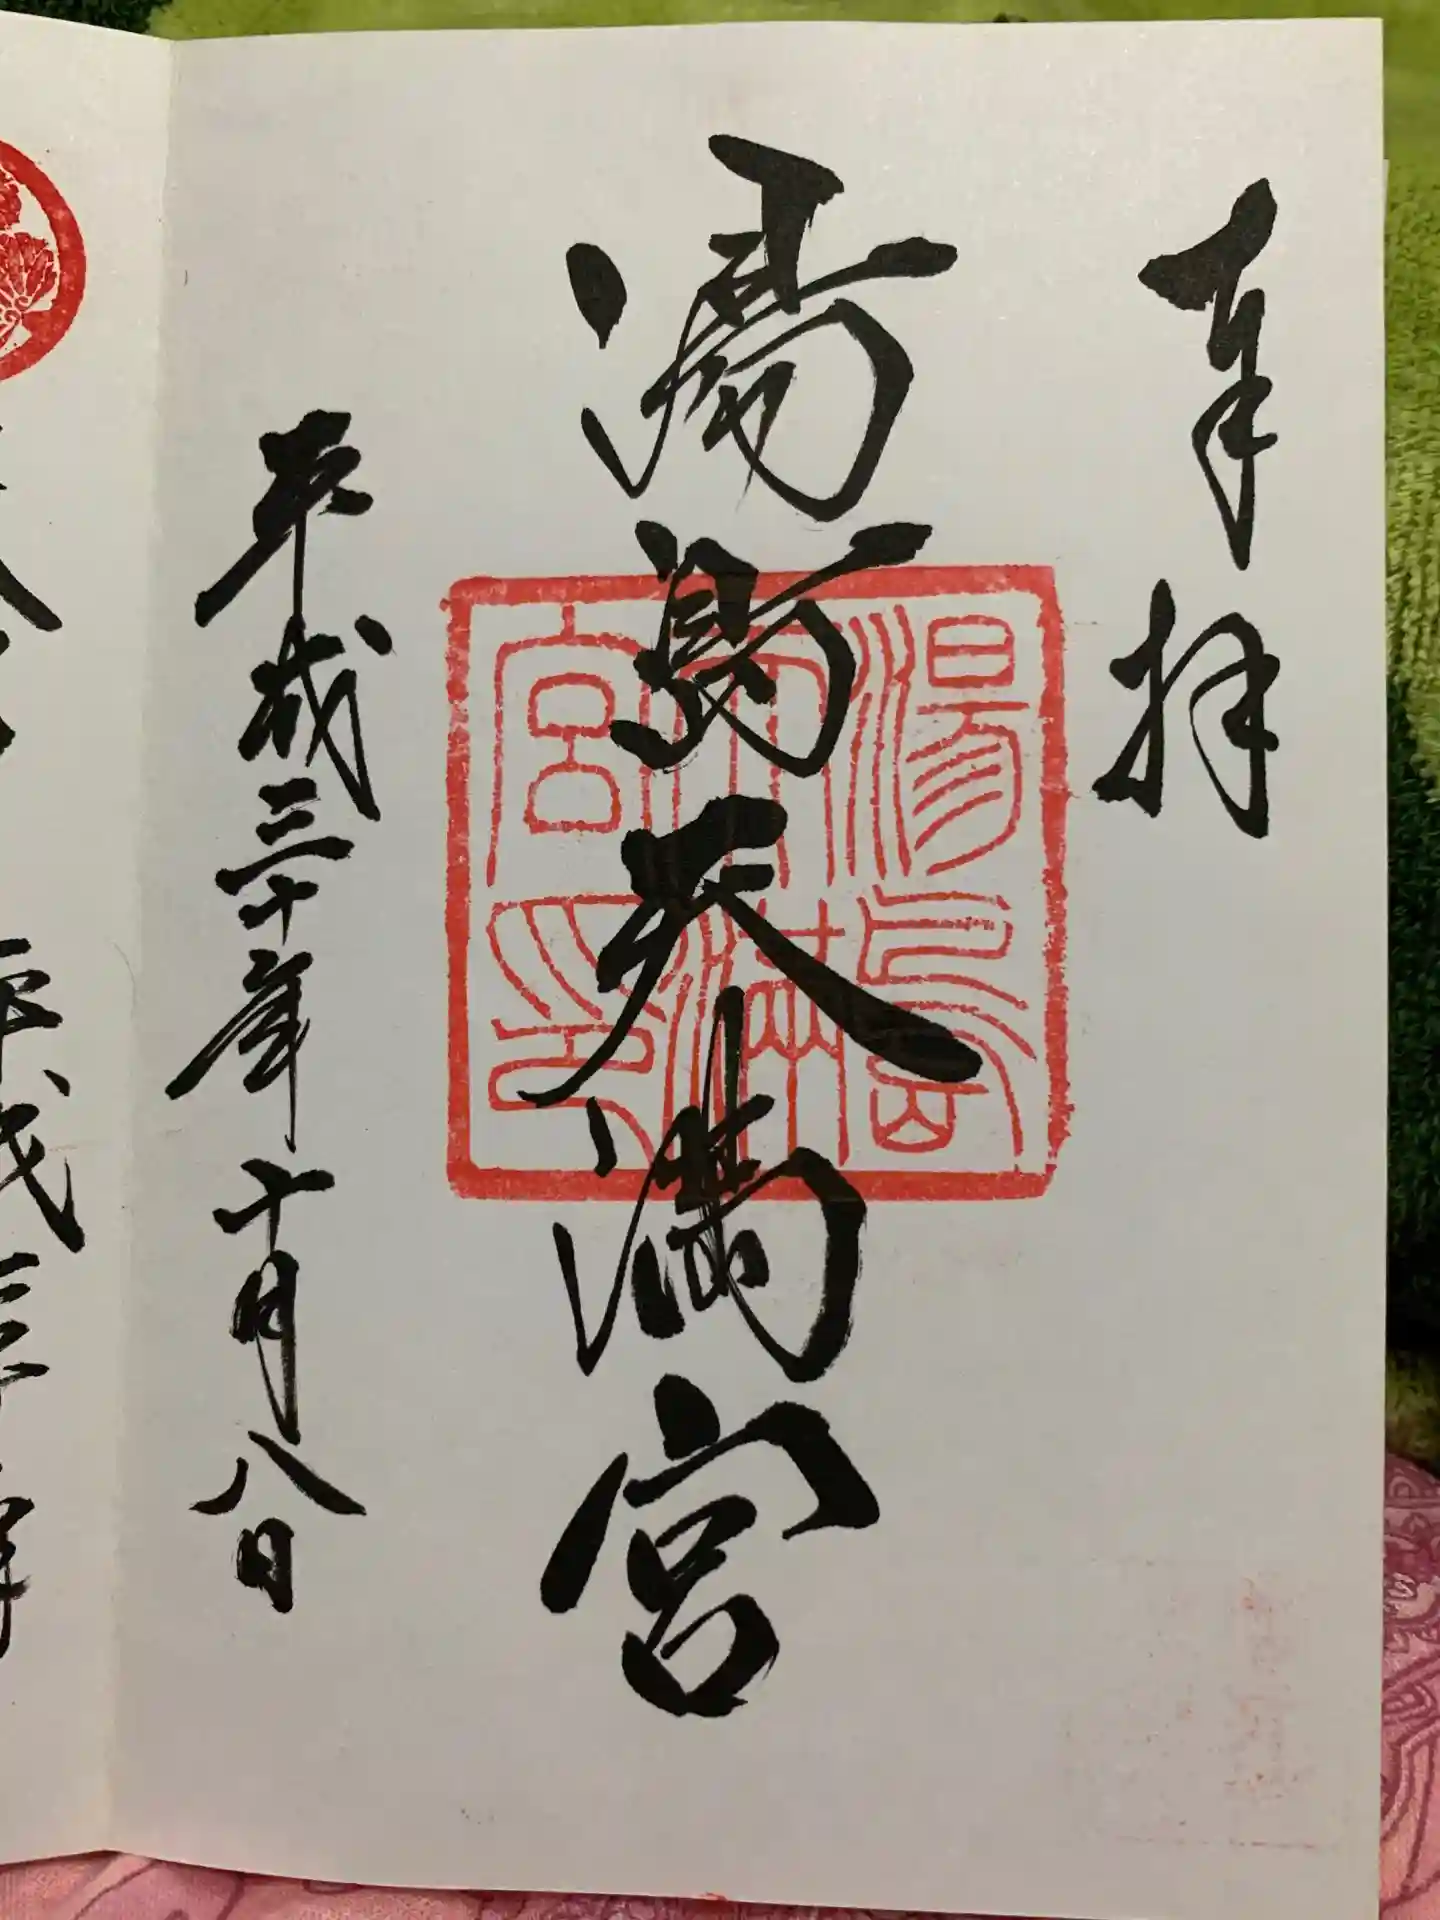 奉拝
湯島天満宮
湯島天満宮印
平成三十年十月八日
平成三十年